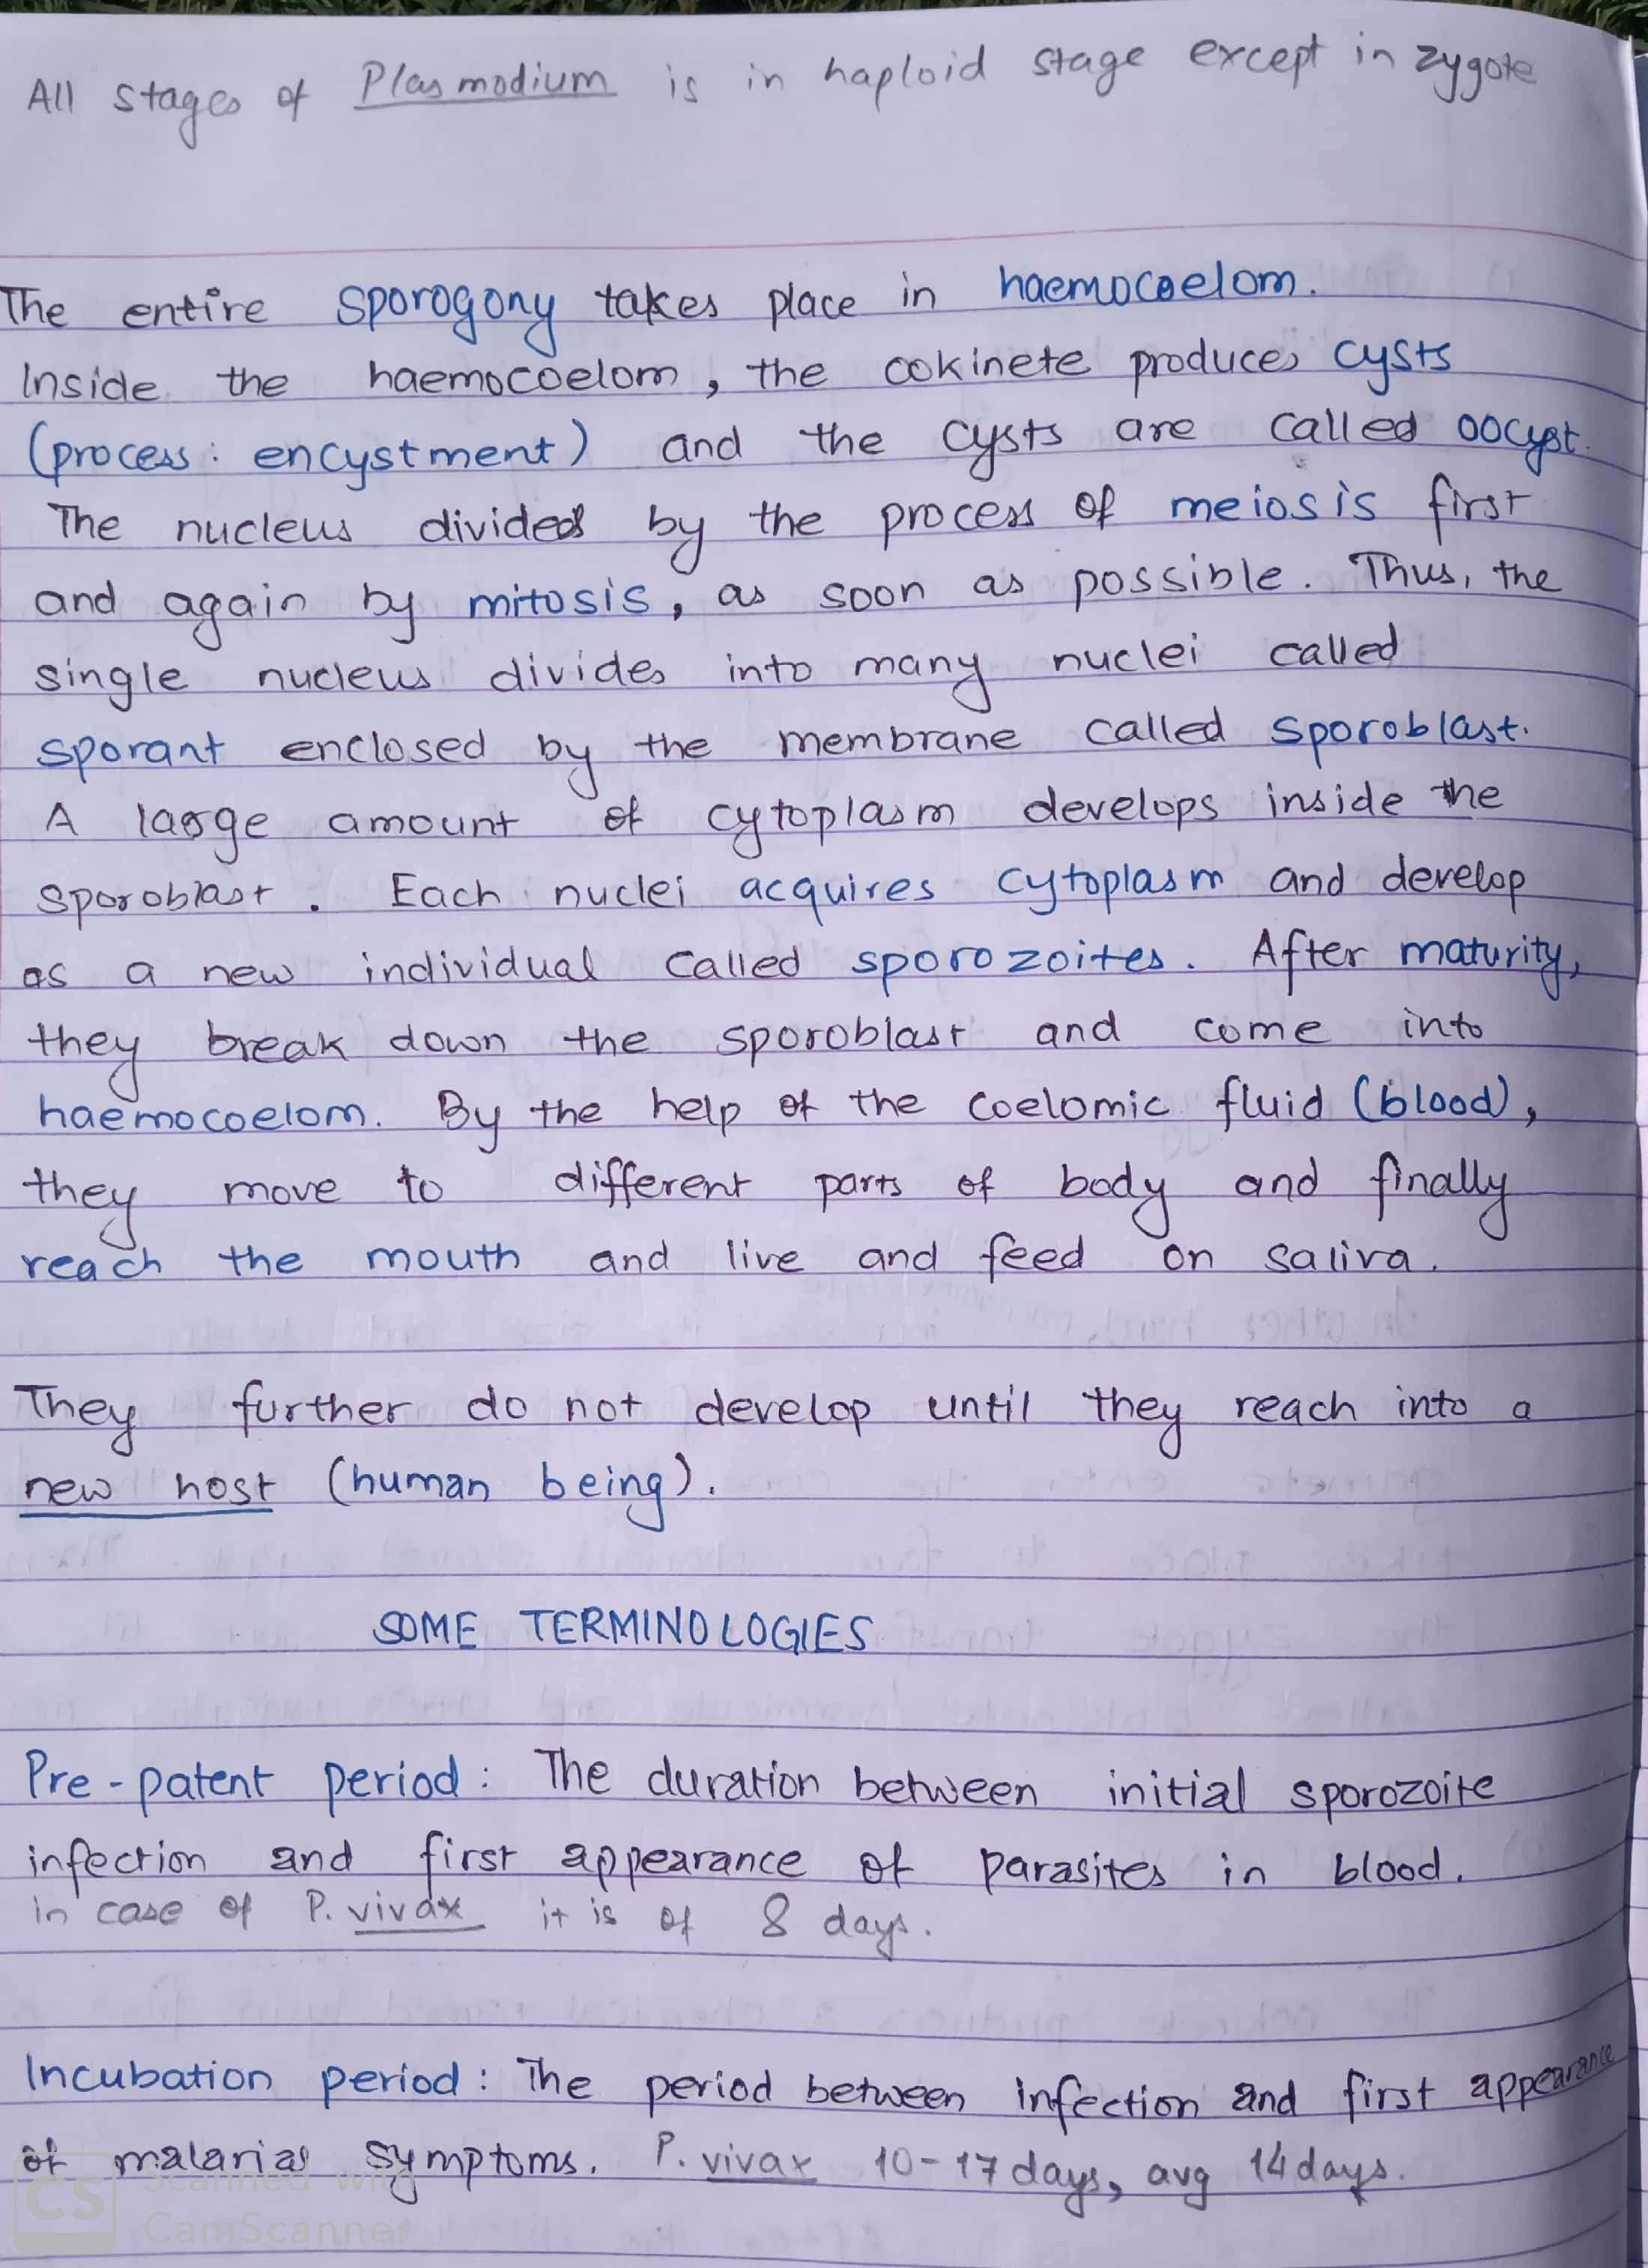 All stages of Plasmodium is in haploid stage except in zygote
The entire sporogony takes place in haemocoelom.
Inside the haemocoelom, the ookinete produces cysts
(process: encystment) and the cysts are called oocyst.
The nucleus divides by the process of meiosis first
and again by mitosis, as soon as possible. Thus, the
single nucleus divides into many nuclei called
sporant enclosed by the membrane called sporoblast.
A large amount of cytoplasm develops inside the
sporoblast. Each nuclei acquires cytoplasm and develop
as a new individual called sporozoites. After maturity,
they break down the sporoblast and come into
haemocoelom. By the help of the coelomic fluid (blood),
they move to different parts of body and finally
reach the mouth and live and feed on saliva.
They further do not develop until they reach into a
new host (human being).
SOME TERMINOLOGIES
Pre-patent period: The duration between initial sporozoite
infection and first appearance of parasites in blood.
in case of P. vivax it is of 8 days.
Incubation period: The period between infection and first appearance
of malarial symptoms. P. vivax 10-17 days, avg 14 days.
CS Scanned with
CamScanner